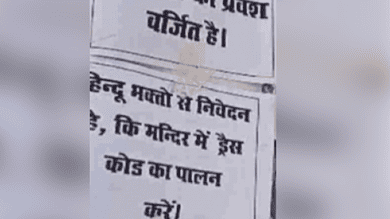 का प्रवेश
वर्जित है।
हिन्दू भक्तो से निवेदन
है, कि मन्दिर में ड्रैस
कोड का पालन
करें।